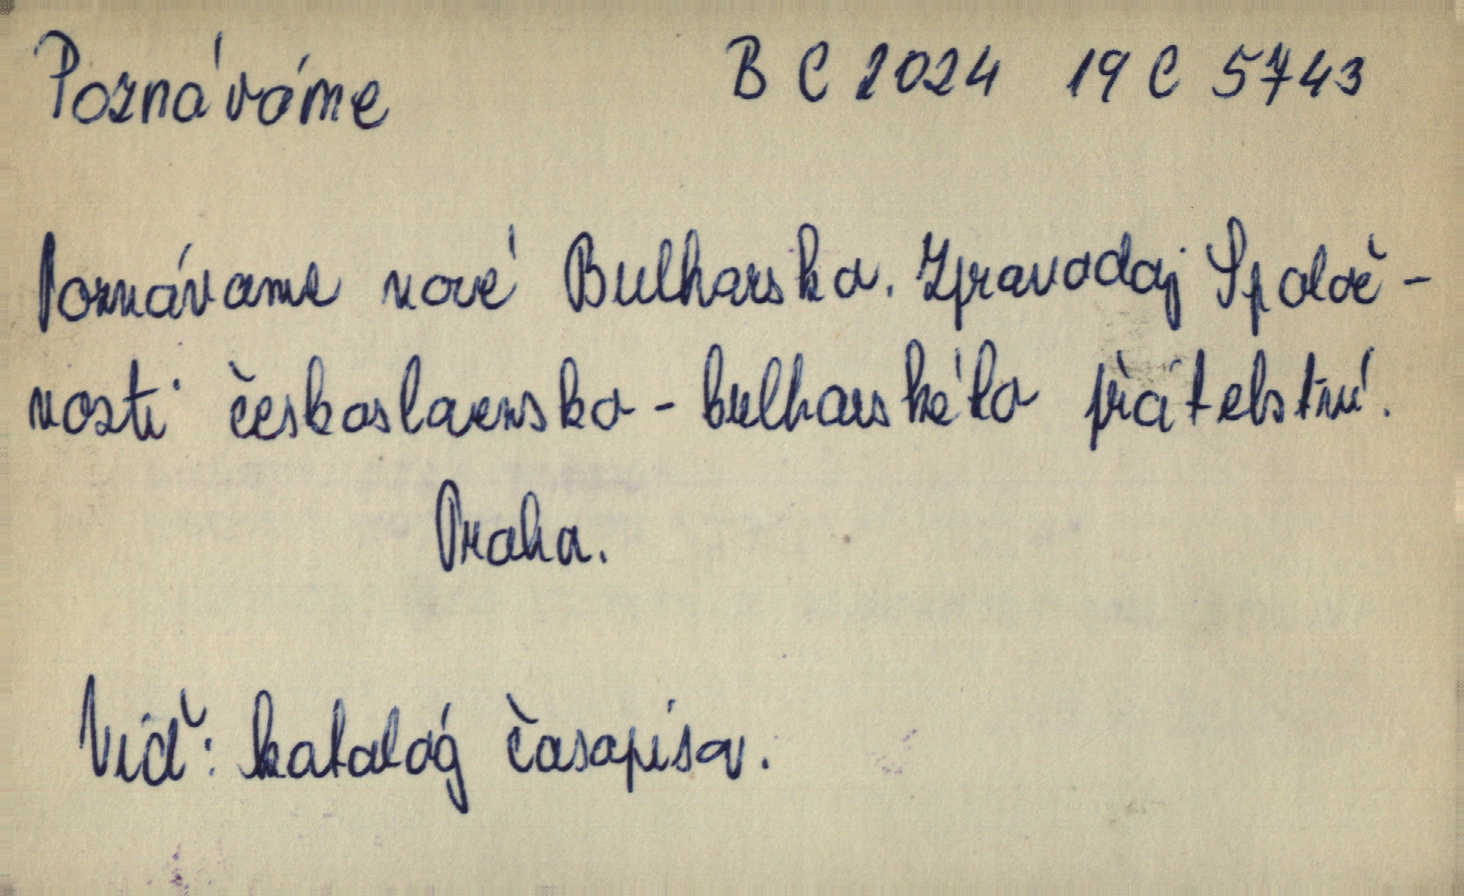 Poznáváme B C 2024 19 C 5743
Poznáváme nové Bulharsko. Zpravodaj Společ-
nosti československo-bulharského přátelství.
Praha.
Viď: katalóg časopisov.